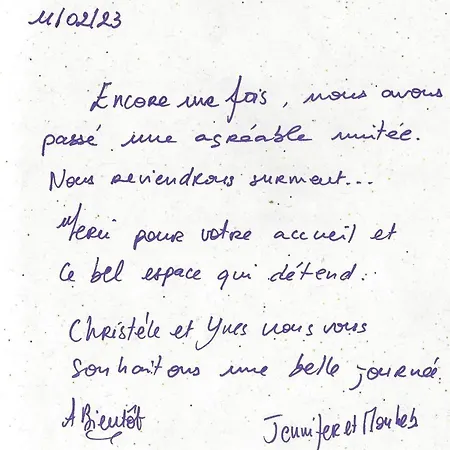 11/02/23
Encore une fois, nous avons
passé une agréable nuitée.
Nous reviendrons surment...
Merci pour votre accueil et
ce bel espace qui détend.
Christèle et Yves nous vous
souhaitons une belle journée
A Bientôt
Jennifer et